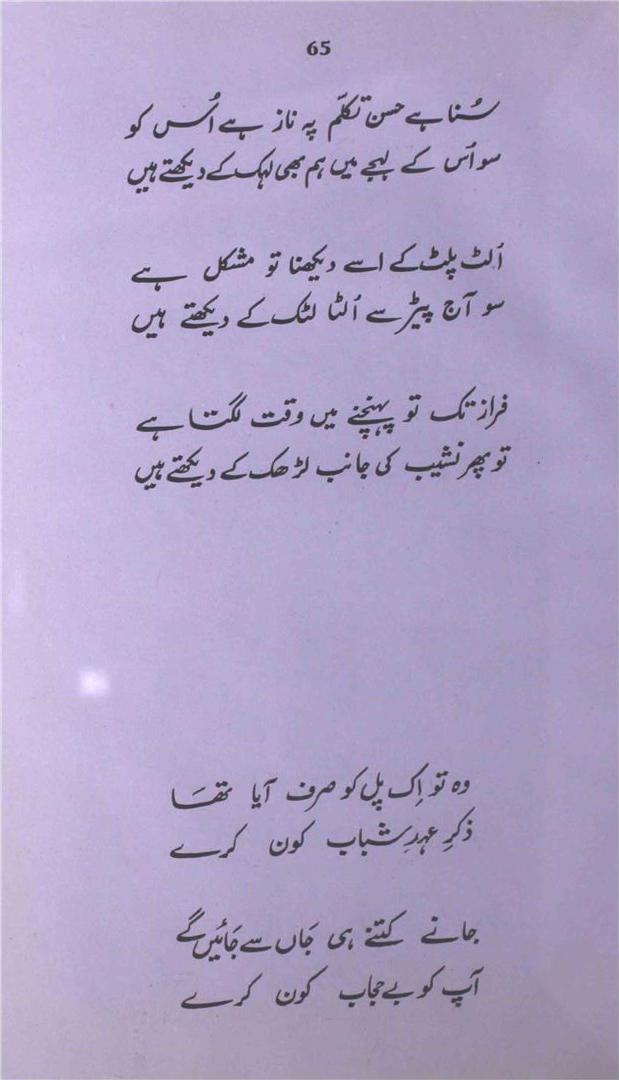 65
سُنا ہے حسن تکلّم پہ ناز ہے اُس کو
سو اُس کے لہجے میں ہم بھی لہک کے دیکھتے ہیں
اُلٹ پلٹ کے اسے دیکھنا تو مشکل ہے
سو آج پیڑ سے اُلٹا لٹک کے دیکھتے ہیں
فراز تک تو پہنچنے میں وقت لگتا ہے
تو پھر نشیب کی جانب لڑھک کے دیکھتے ہیں
وہ تو اِک پل کو صرف آیا تھَا
ذکرِ عہدِ شباب کون کرے
جانے کتنے ہی جَاں سے جَائیں گے
آپ کو بے حجاب کون کرے